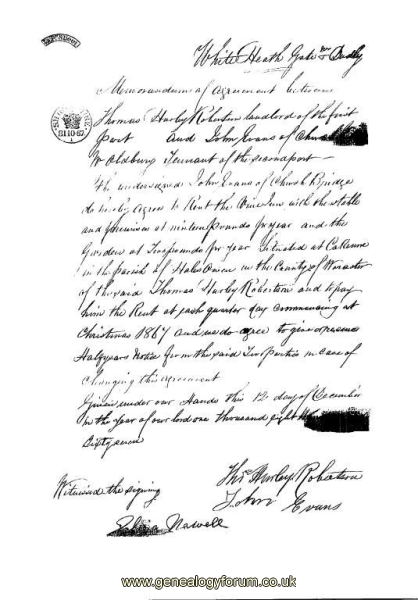 White Heath Gate Nr Dudly
Memorandum of Agreement between
Thomas Hurley Robertson landlord of the first
part and John Evans of Church
Nr Oldbury Tennant of the second part —
The undersigned John Evans of Church Bridge
do hereby Agree to Rent the Inn with the stable
and premises at nineteen pounds per year and the
Garden at Two pounds per Year situated at Cakemore
in the parish of Hales Owen in the County of Worcester
of the said Thomas Hurley Robertson and to pay
him the Rent at each quarter day commencing at
Christmas 1867 and we do agree to give
Half years Notice from the said Two parties in case of
Changing this agreement
Given under our Hands this 12 day of December
in the Year of our lord one thousand eight
Sixty seven
Witnessed the signing
Thos Hurley Robertson
John Evans
Newell
31.10.67
www.genealogyforum.co.uk